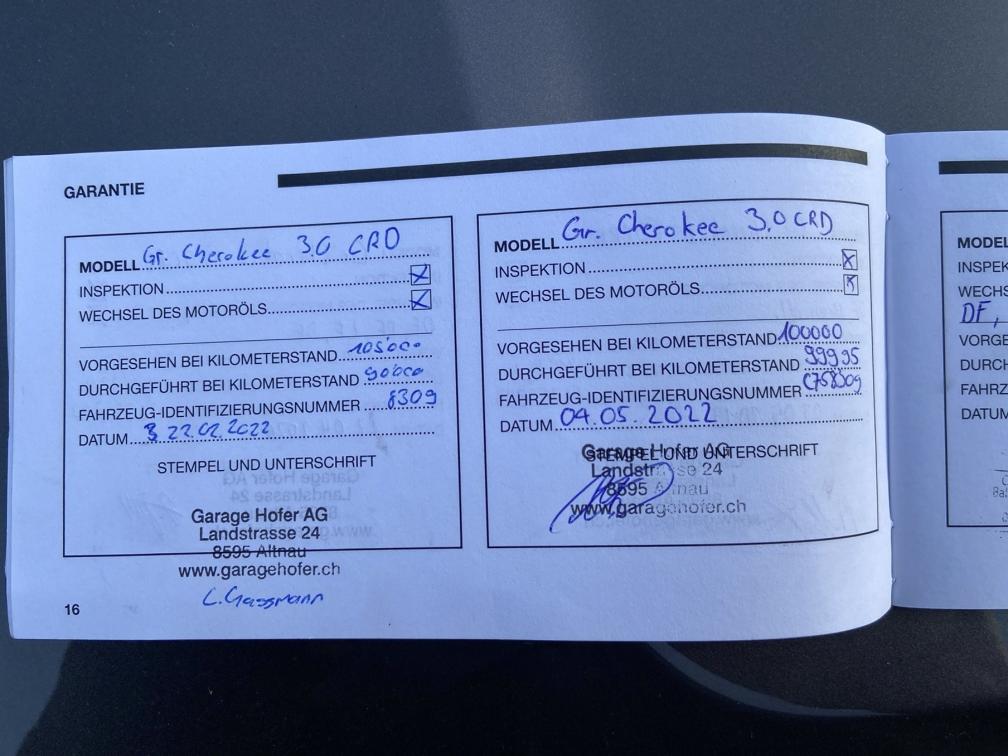 GARANTIE
MODELL Gr. Cherokee 3.0 CRD
INSPEKTION
WECHSEL DES MOTORÖLS
VORGESEHEN BEI KILOMETERSTAND 105'000
DURCHGEFÜHRT BEI KILOMETERSTAND 90000
FAHRZEUG-IDENTIFIZIERUNGSNUMMER 8309
DATUM 22.02.2022
STEMPEL UND UNTERSCHRIFT
Garage Hofer AG
Landstrasse 24
8595 Altnau
www.garagehofer.ch
C. Gassmann
16
MODELL Gr. Cherokee 3.0 CRD
INSPEKTION
WECHSEL DES MOTORÖLS
VORGESEHEN BEI KILOMETERSTAND 100000
DURCHGEFÜHRT BEI KILOMETERSTAND 99995
FAHRZEUG-IDENTIFIZIERUNGSNUMMER C758309
DATUM 04.05.2022
STEMPEL UND UNTERSCHRIFT
Garage Hofer AG
Landstrasse 24
8595 Altnau
www.garagehofer.ch
MODEL
INSPEK
WECHS
DF,
VORGE
DURCH
FAHRZ
DATUM